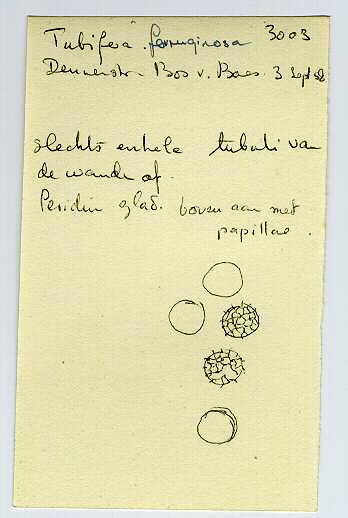 Tubifera ferruginosa 3003
Dennenstr. Bos v. Baes 3 Sept 58
slechts enkele tubuli van
de wand af.
Peridie glad. boven aan met
papillae.